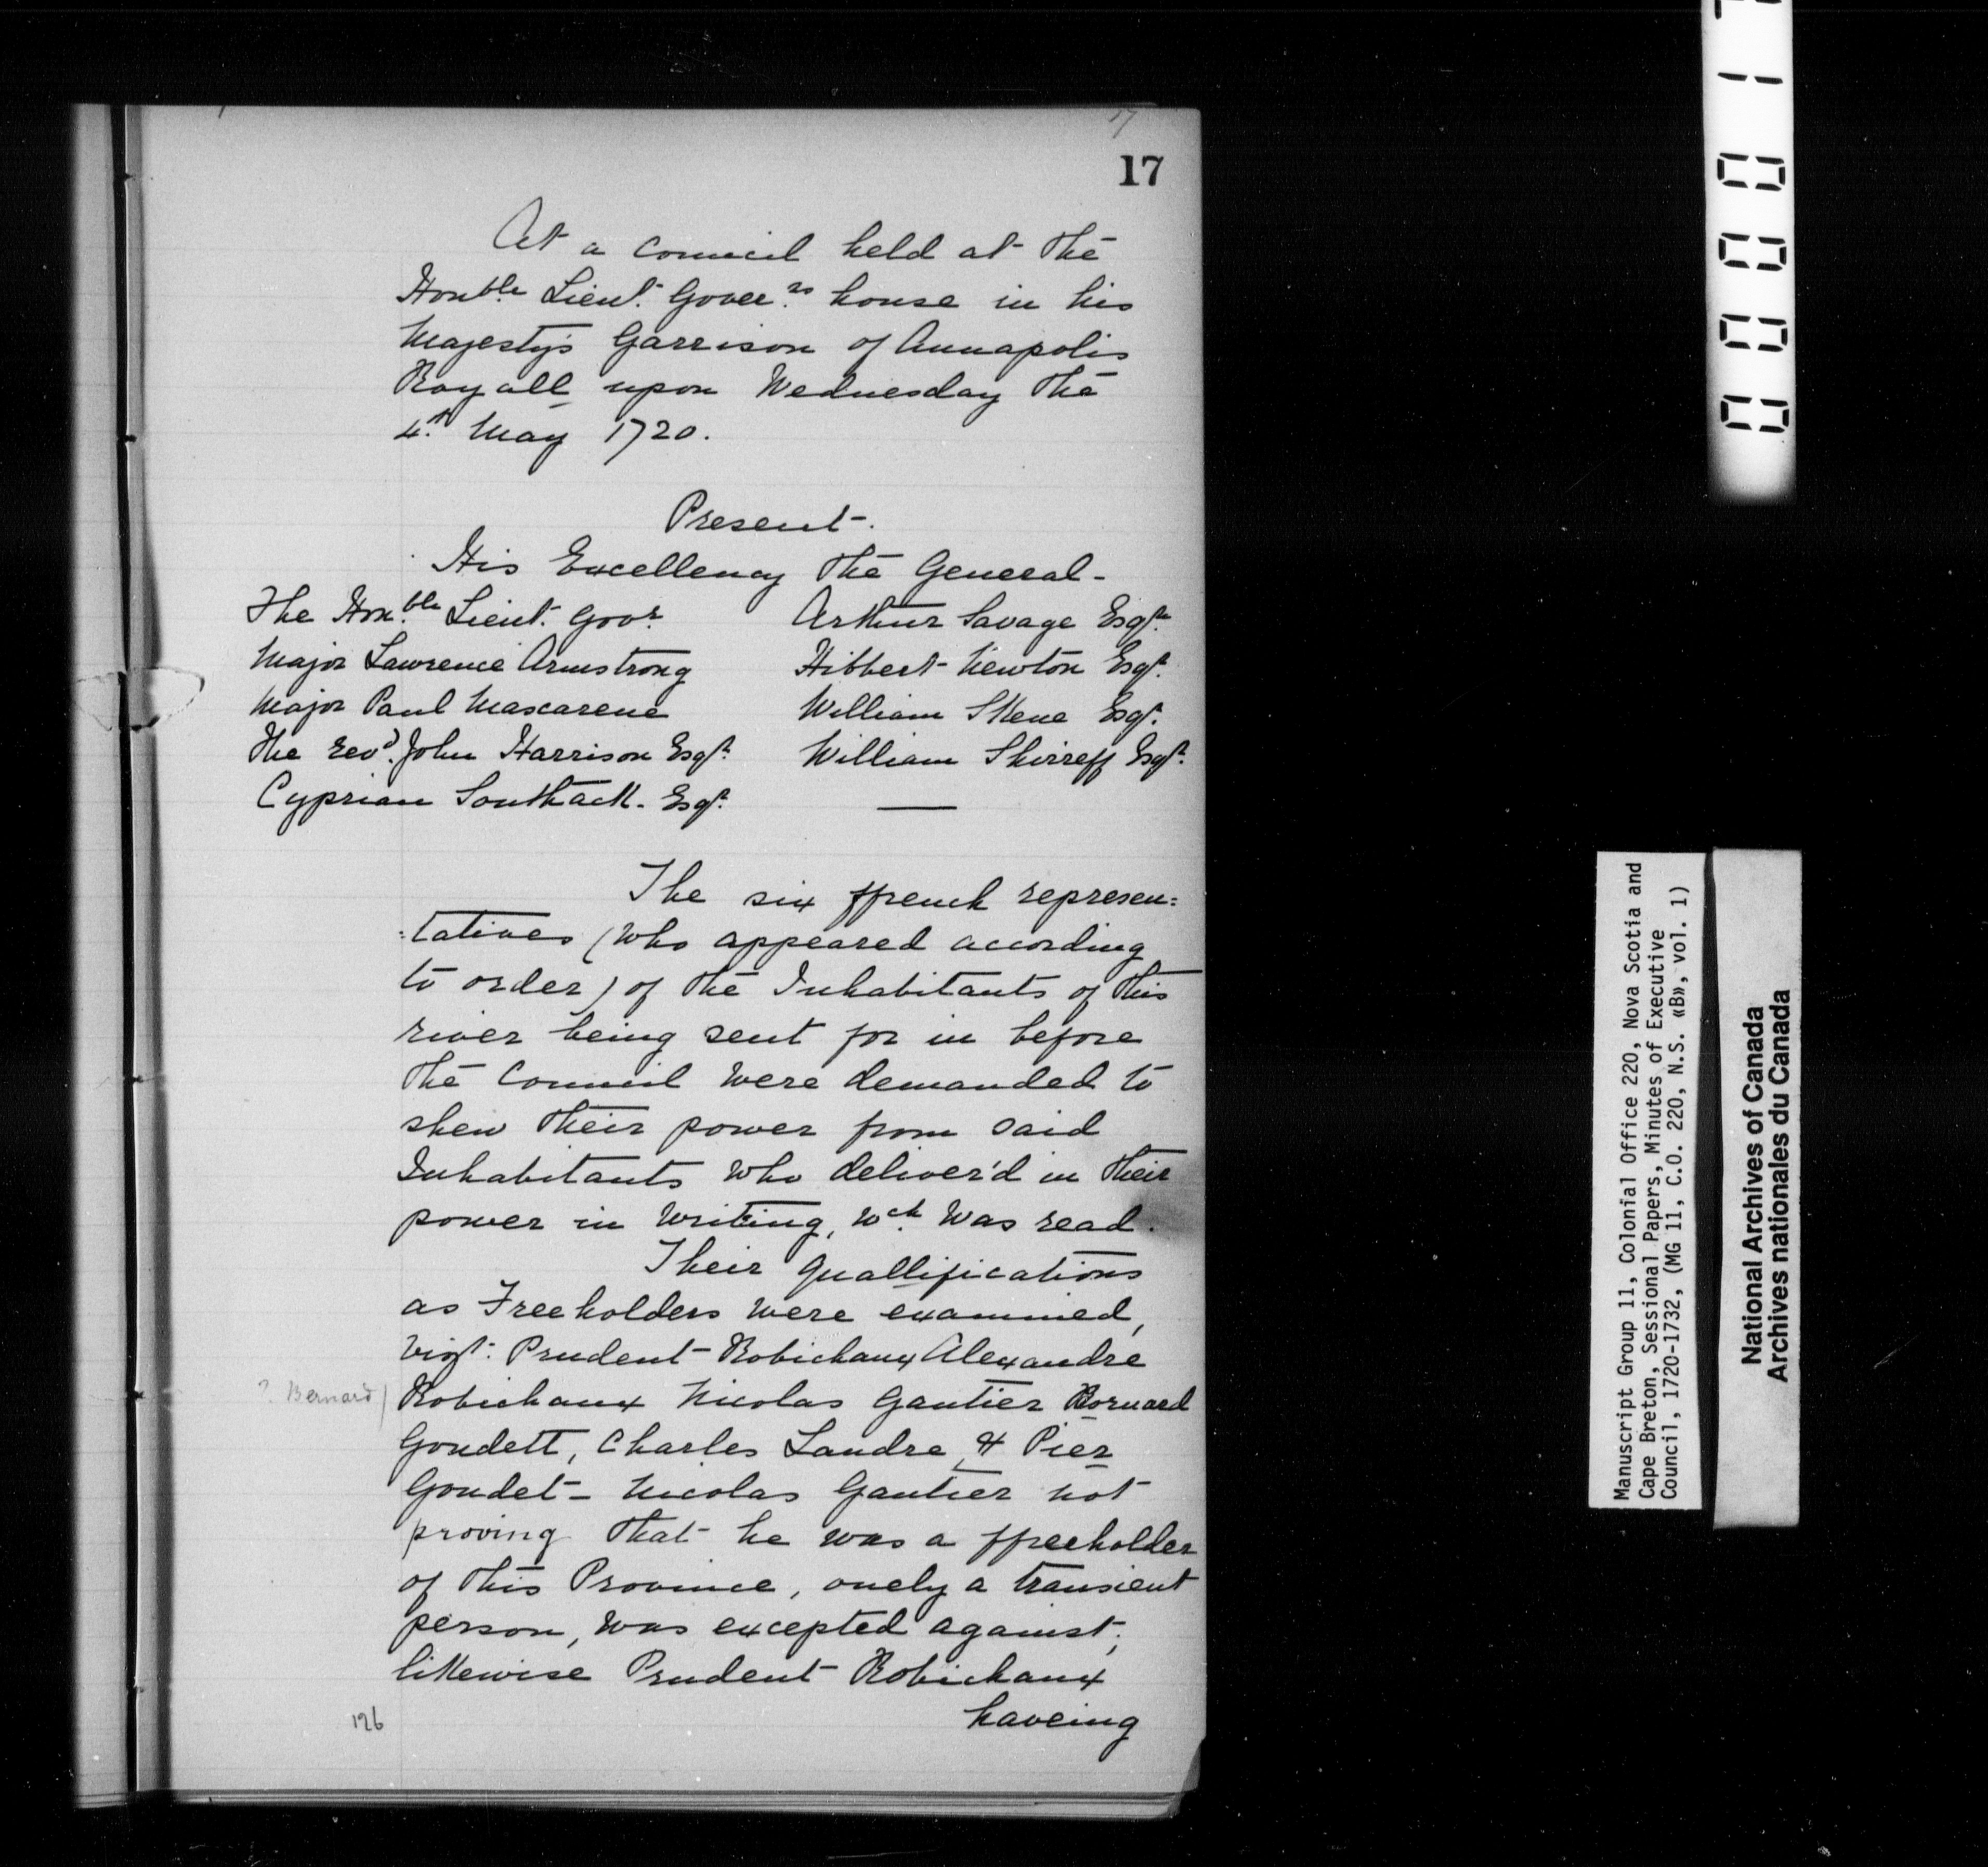 17
17
At a Council held at the
Honble Lieut. Goverrs house in his
Majesty's Garrison of Annapolis
Royall upon Wednesday the
4th May 1720.
Present.
His Excellency the General-
The Honble Lieut. Govr. Arthur Savage Esqr.
Major Lawrence Armstrong Hibbert Newton Esqr.
Major Paul Mascarene William Skene Esqr.
The revd. John Harrison Esqr. William Shirreff Esqr.
Cyprian Southack. Esqr.
The six ffrench represen=
=tatives (who appeared according
to order) of the Inhabitants of this
river being sent for in before
the Council were demanded to
shew their power from said
Inhabitants who deliver'd in their
power in writing, wch. was read.
Their quallifications
as Freeholders were examined,
vizt: Prudent Robichaux Alexandre
? Bernard / Robichaux Nicolas Gautier Bornard
Goudett, Charles Landre, & Pier
Goudet - Nicolas Gautier not
proving that he was a ffreeholder
of this Province, onely a transient
person, was excepted against;
likewise Prudent Robichaux
haveing
126
Manuscript Group 11, Colonial Office 220, Nova Scotia and
Cape Breton, Sessional Papers, Minutes of Executive
Council, 1720-1732, (MG 11, C.O. 220, N.S. «B», vol. 1)
National Archives of Canada
Archives nationales du Canada